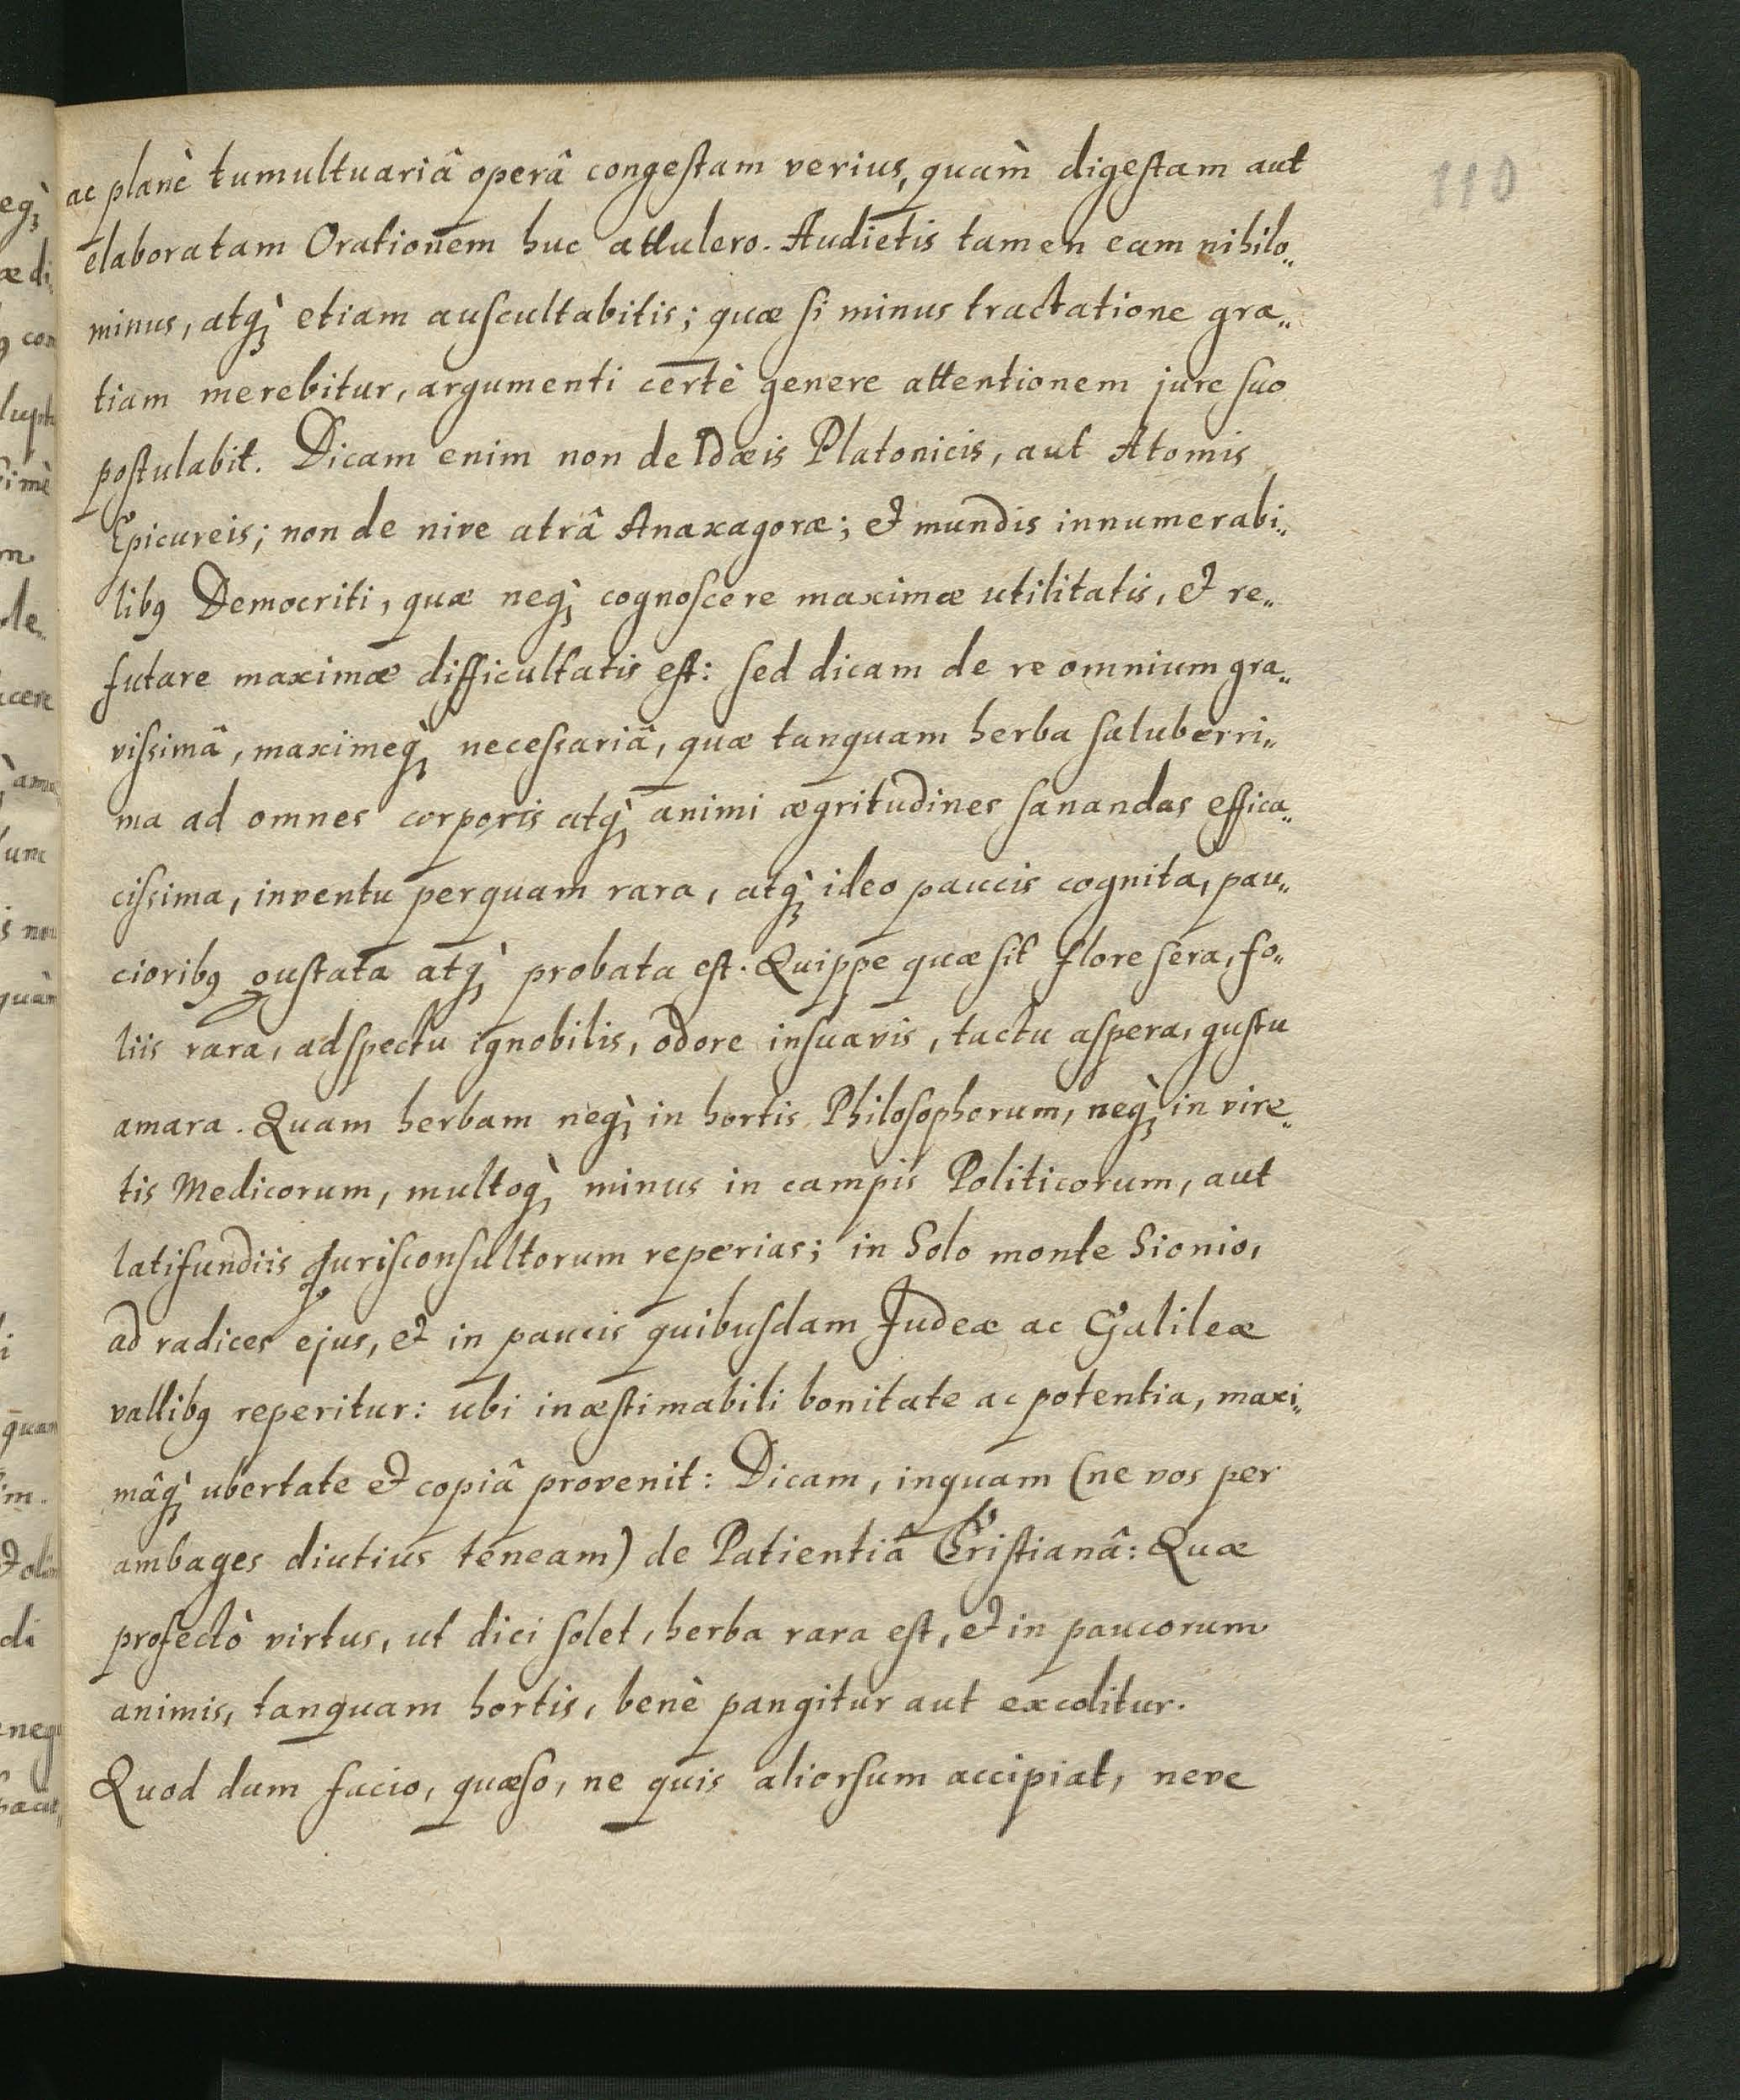 110
ac planè tumultuariâ operâ congestam verius, quàm digestam aut
elaboratam Orationem huc attulero. Audietis tamen eam nihilo„
minus, atq; etiam auscultabitis; quæ si minus tractatione gra„
tiam merebitur, argumenti certè genere attentionem jure suo
postulabit. Dicam enim non de Idæis Platonicis, aut Atomis
Epicureis; non de nive atrâ Anaxagoræ; et mundis innumerabi„
libꝯ Democriti, quæ neq; cognoscere maximæ utilitatis, et re„
futare maximæ difficultatis est: sed dicam de re omnium gra„
vissimâ, maximeq; necessariâ, quæ tanquam herba saluberri„
ma ad omnes corporis atq; animi ægritudines sanandas effica„
cissima, inventu perquam rara, atq; ideo paucis cognita, pau„
cioribꝯ gustata atq; probata est. Quippe quæ sit flore sera, fo„
liis rara, adspectu ignobilis, odore insuavis, tactu aspera, gustu
amara. Quam herbam neq; in hortis Philosophorum, neq; in vire„
tis Medicorum, multoq; minus in campis Politicorum, aut
latifundiis Jurisconsultorum reperias; in Solo monte Sionio,
ad radices ejus, et in paucis quibusdam Judeæ ac Galileæ
vallibꝯ reperitur: ubi inæstimabili bonitate ac potentia, maxi„
mâq; ubertate et copiâ provenit: Dicam, inquam (ne vos per
ambages diutius teneam) de Patientiâ Cristianâ: Quæ
profectò virtus, ut dici solet, herba rara est, et in paucorum
animis, tanquam hortis, benè pangitur aut excolitur.
Quod dum facio, quæso, ne quis aliorsum accipiat, neve